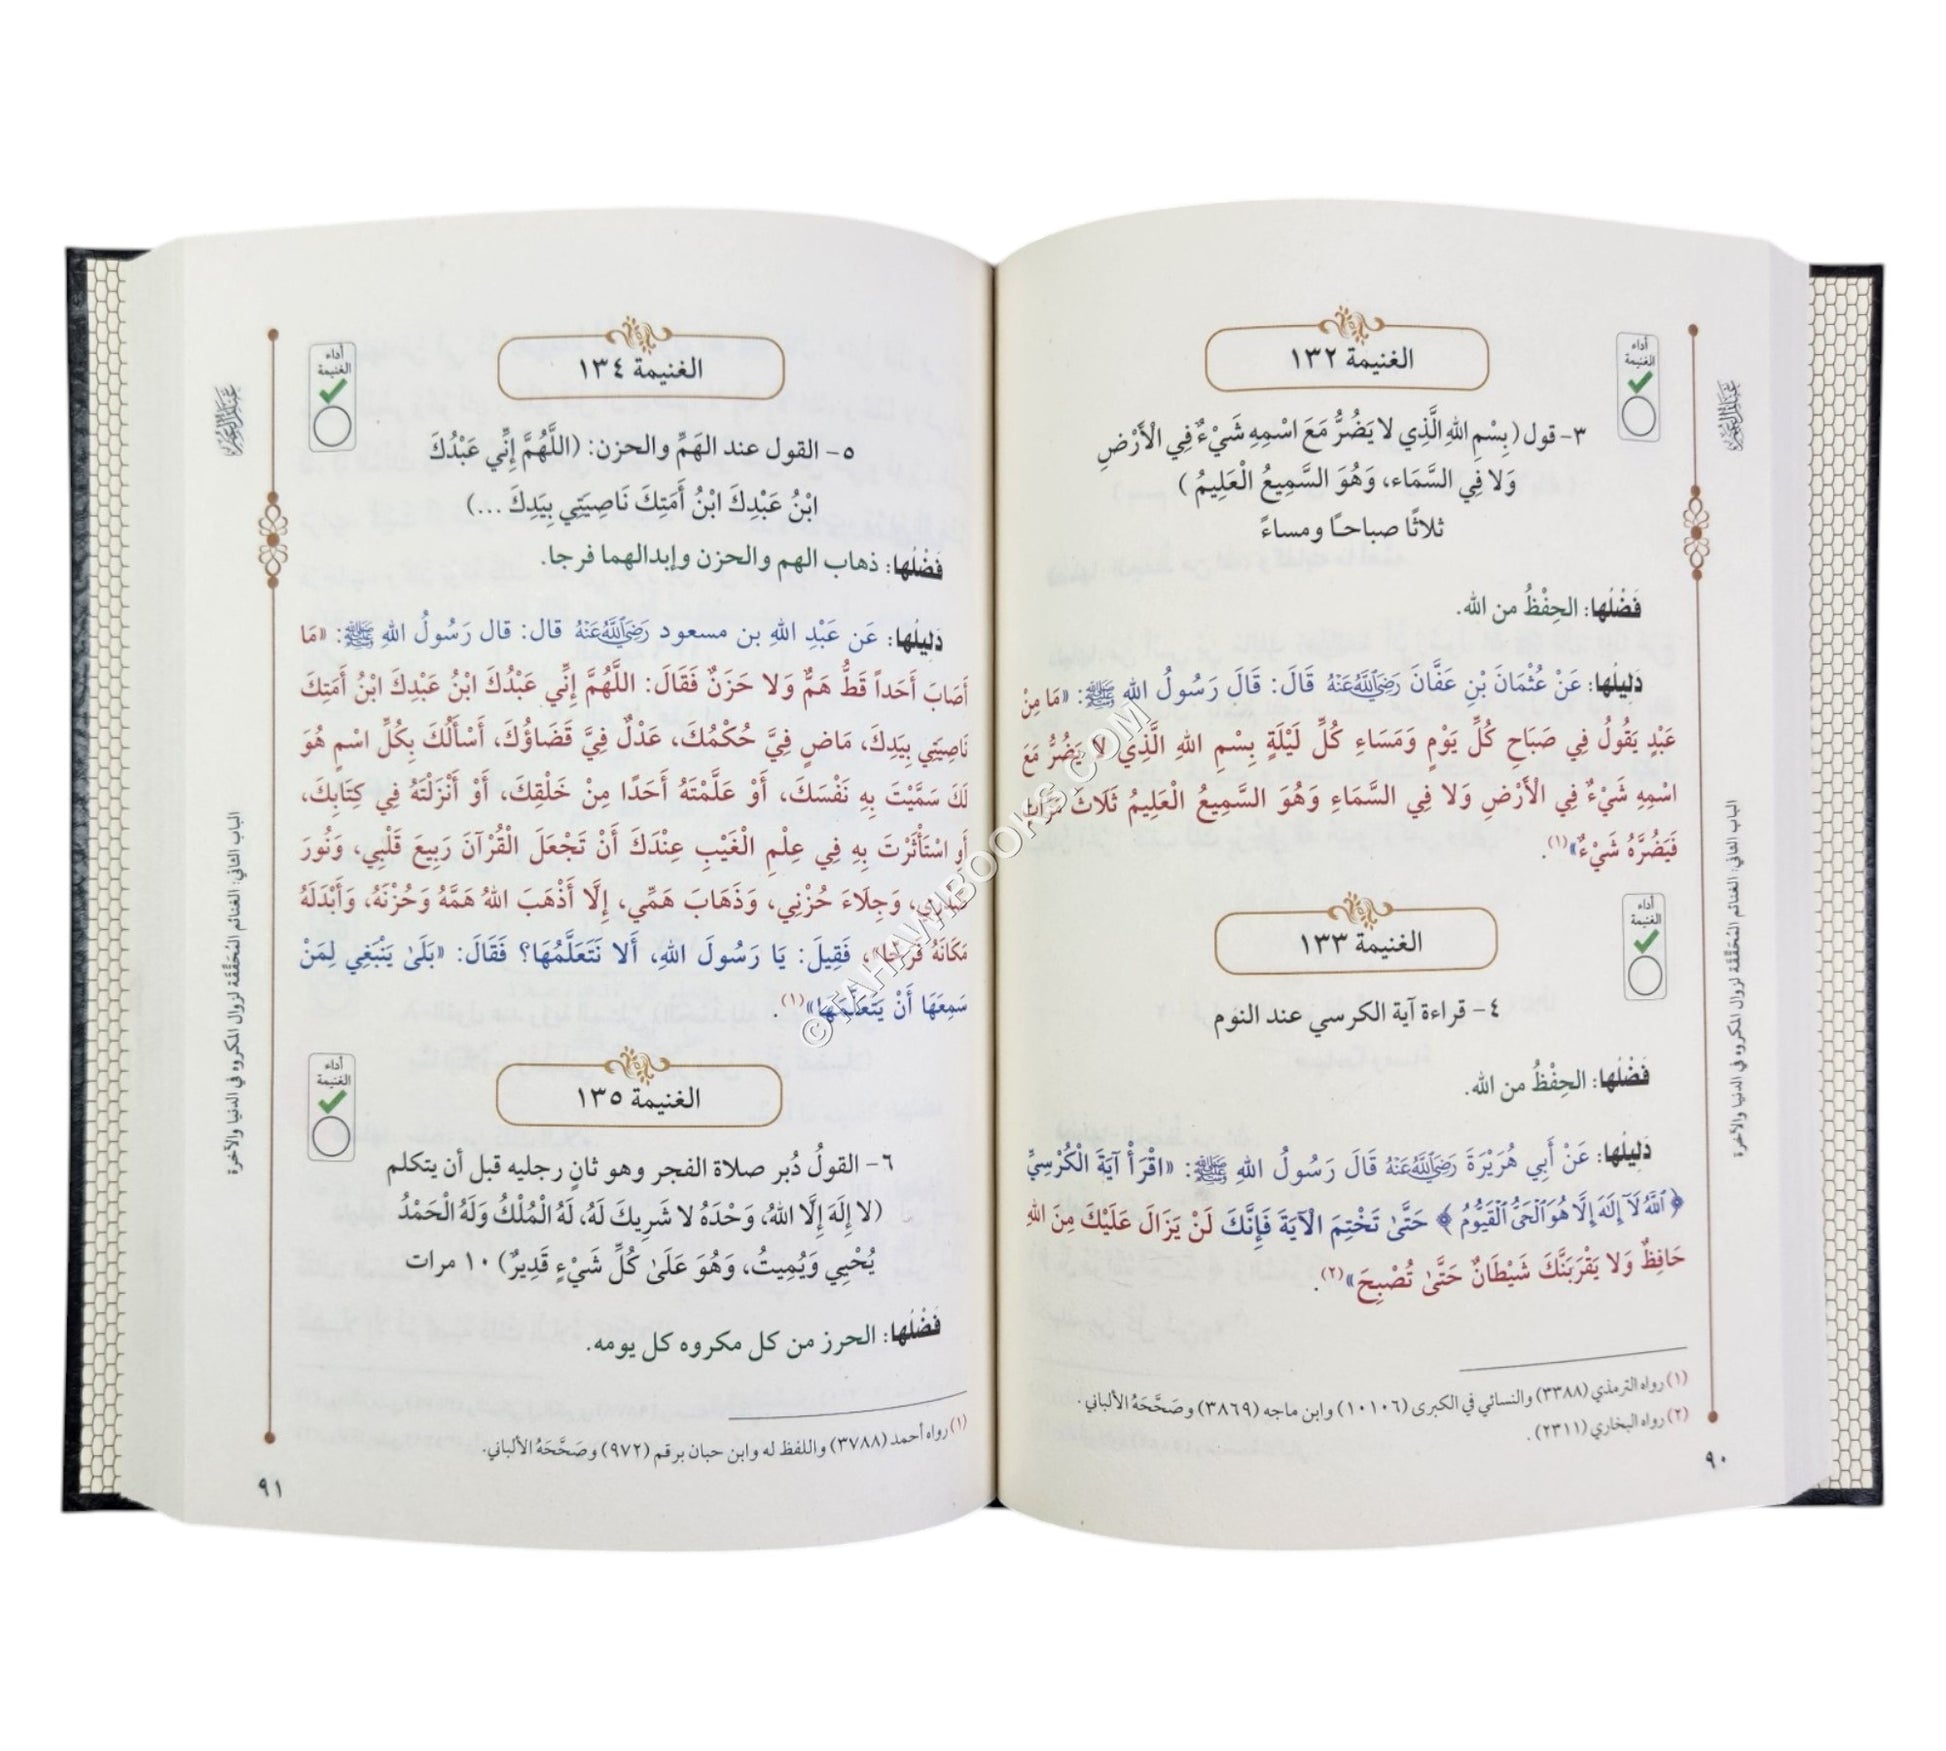 أداء
الغنيمة
الغنيمة ١٣٢
٣- قول (بِسْمِ اللهِ الَّذِي لا يَضُرُّ مَعَ اسْمِهِ شَيْءٌ فِي الْأَرْضِ
وَلا فِي السَّمَاء، وَهُوَ السَّمِيعُ الْعَلِيمُ)
ثلاثًا صباحًا ومساءً
فَضْلُها: الحِفْظُ من الله.
دَلِيلُها: عَنْ عُثْمَانَ بْنِ عَفَّانَ رَضِيَ اللهُ عَنْهُ قَالَ: قَالَ رَسُولُ اللهِ ﷺ: «مَا مِنْ
عَبْدٍ يَقُولُ فِي صَبَاحِ كُلِّ يَوْمٍ وَمَسَاءِ كُلِّ لَيْلَةٍ بِسْمِ اللهِ الَّذِي لا يَضُرُّ مَعَ
اسْمِهِ شَيْءٌ فِي الْأَرْضِ وَلا فِي السَّمَاءِ وَهُوَ السَّمِيعُ الْعَلِيمُ ثَلَاثَ مَرَّاتٍ
فَيَضُرَّهُ شَيْءٌ»(١).
أداء
الغنيمة
الغنيمة ١٣٣
٤- قراءة آية الكرسي عند النوم
فَضْلُها: الحِفْظُ من الله.
دَلِيلُها: عَنْ أَبِي هُرَيْرَةَ رَضِيَ اللهُ عَنْهُ قَالَ رَسُولُ اللهِ ﷺ: «اقْرَأْ آيَةَ الْكُرْسِيِّ
﴿ٱللَّهُ لَآ إِلَٰهَ إِلَّا هُوَ ٱلْحَىُّ ٱلْقَيُّومُ﴾ حَتَّىٰ تَخْتِمَ الْآيَةَ فَإِنَّكَ لَنْ يَزَالَ عَلَيْكَ مِنَ اللهِ
حَافِظٌ وَلا يَقْرَبَنَّكَ شَيْطَانٌ حَتَّىٰ تُصْبِحَ»(٢).
(١) رواه الترمذي (٣٣٨٨) والنسائي في الكبرى (١٠١٠٦) وابن ماجه (٣٨٦٩) وصَحَّحَهُ الألباني.
(٢) رواه البخاري (٢٣١١).
٩٠
الباب الثاني: الغنائم المُحَقِّقَة لزوال المكروه في الدنيا والآخرة
أداء
الغنيمة
الغنيمة ١٣٤
٥- القول عند الهَمِّ والحزن: (اللَّهُمَّ إِنِّي عَبْدُكَ
ابْنُ عَبْدِكَ ابْنُ أَمَتِكَ نَاصِيَتِي بِيَدِكَ ...)
فَضْلُها: ذهاب الهم والحزن وإبدالهما فرجا.
دَلِيلُها: عَن عَبْدِ اللهِ بن مسعود رَضِيَ اللهُ عَنْهُ قال: قال رَسُولُ اللهِ ﷺ: «مَا
أَصَابَ أَحَداً قَطُّ هَمٌّ وَلا حَزَنٌ فَقَالَ: اللَّهُمَّ إِنِّي عَبْدُكَ ابْنُ عَبْدِكَ ابْنُ أَمَتِكَ
نَاصِيَتِي بِيَدِكَ، مَاضٍ فِيَّ حُكْمُكَ، عَدْلٌ فِيَّ قَضَاؤُكَ، أَسْأَلُكَ بِكُلِّ اسْمٍ هُوَ
لَكَ سَمَّيْتَ بِهِ نَفْسَكَ، أَوْ عَلَّمْتَهُ أَحَدًا مِنْ خَلْقِكَ، أَوْ أَنْزَلْتَهُ فِي كِتَابِكَ،
أَو اسْتَأْثَرْتَ بِهِ فِي عِلْمِ الْغَيْبِ عِنْدَكَ أَنْ تَجْعَلَ الْقُرْآنَ رَبِيعَ قَلْبِي، وَنُورَ
صَدْرِي، وَجِلَاءَ حُزْنِي، وَذَهَابَ هَمِّي، إِلَّا أَذْهَبَ اللهُ هَمَّهُ وَحُزْنَهُ، وَأَبْدَلَهُ
مَكَانَهُ فَرَجًا»، فَقِيلَ: يَا رَسُولَ اللهِ، أَلا نَتَعَلَّمُهَا؟ فَقَالَ: «بَلَىٰ يَنْبَغِي لِمَنْ
سَمِعَهَا أَنْ يَتَعَلَّمَهَا»(١).
أداء
الغنيمة
الغنيمة ١٣٥
٦- القولُ دُبر صلاة الفجر وهو ثانٍ رجليه قبل أن يتكلم
(لا إِلَهَ إِلَّا اللهُ، وَحْدَهُ لا شَرِيكَ لَهُ، لَهُ الْمُلْكُ وَلَهُ الْحَمْدُ
يُحْيِي وَيُمِيتُ، وَهُوَ عَلَىٰ كُلِّ شَيْءٍ قَدِيرٌ) ١٠ مرات
فَضْلُها: الحرز من كل مكروه كل يومه.
(١) رواه أحمد (٣٧٨٨) واللفظ له وابن حبان برقم (٩٧٢) وصَحَّحَهُ الألباني.
٩١
الباب الثاني: الغنائم المُحَقِّقَة لزوال المكروه في الدنيا والآخرة
© TAHAWIBOOKS.COM